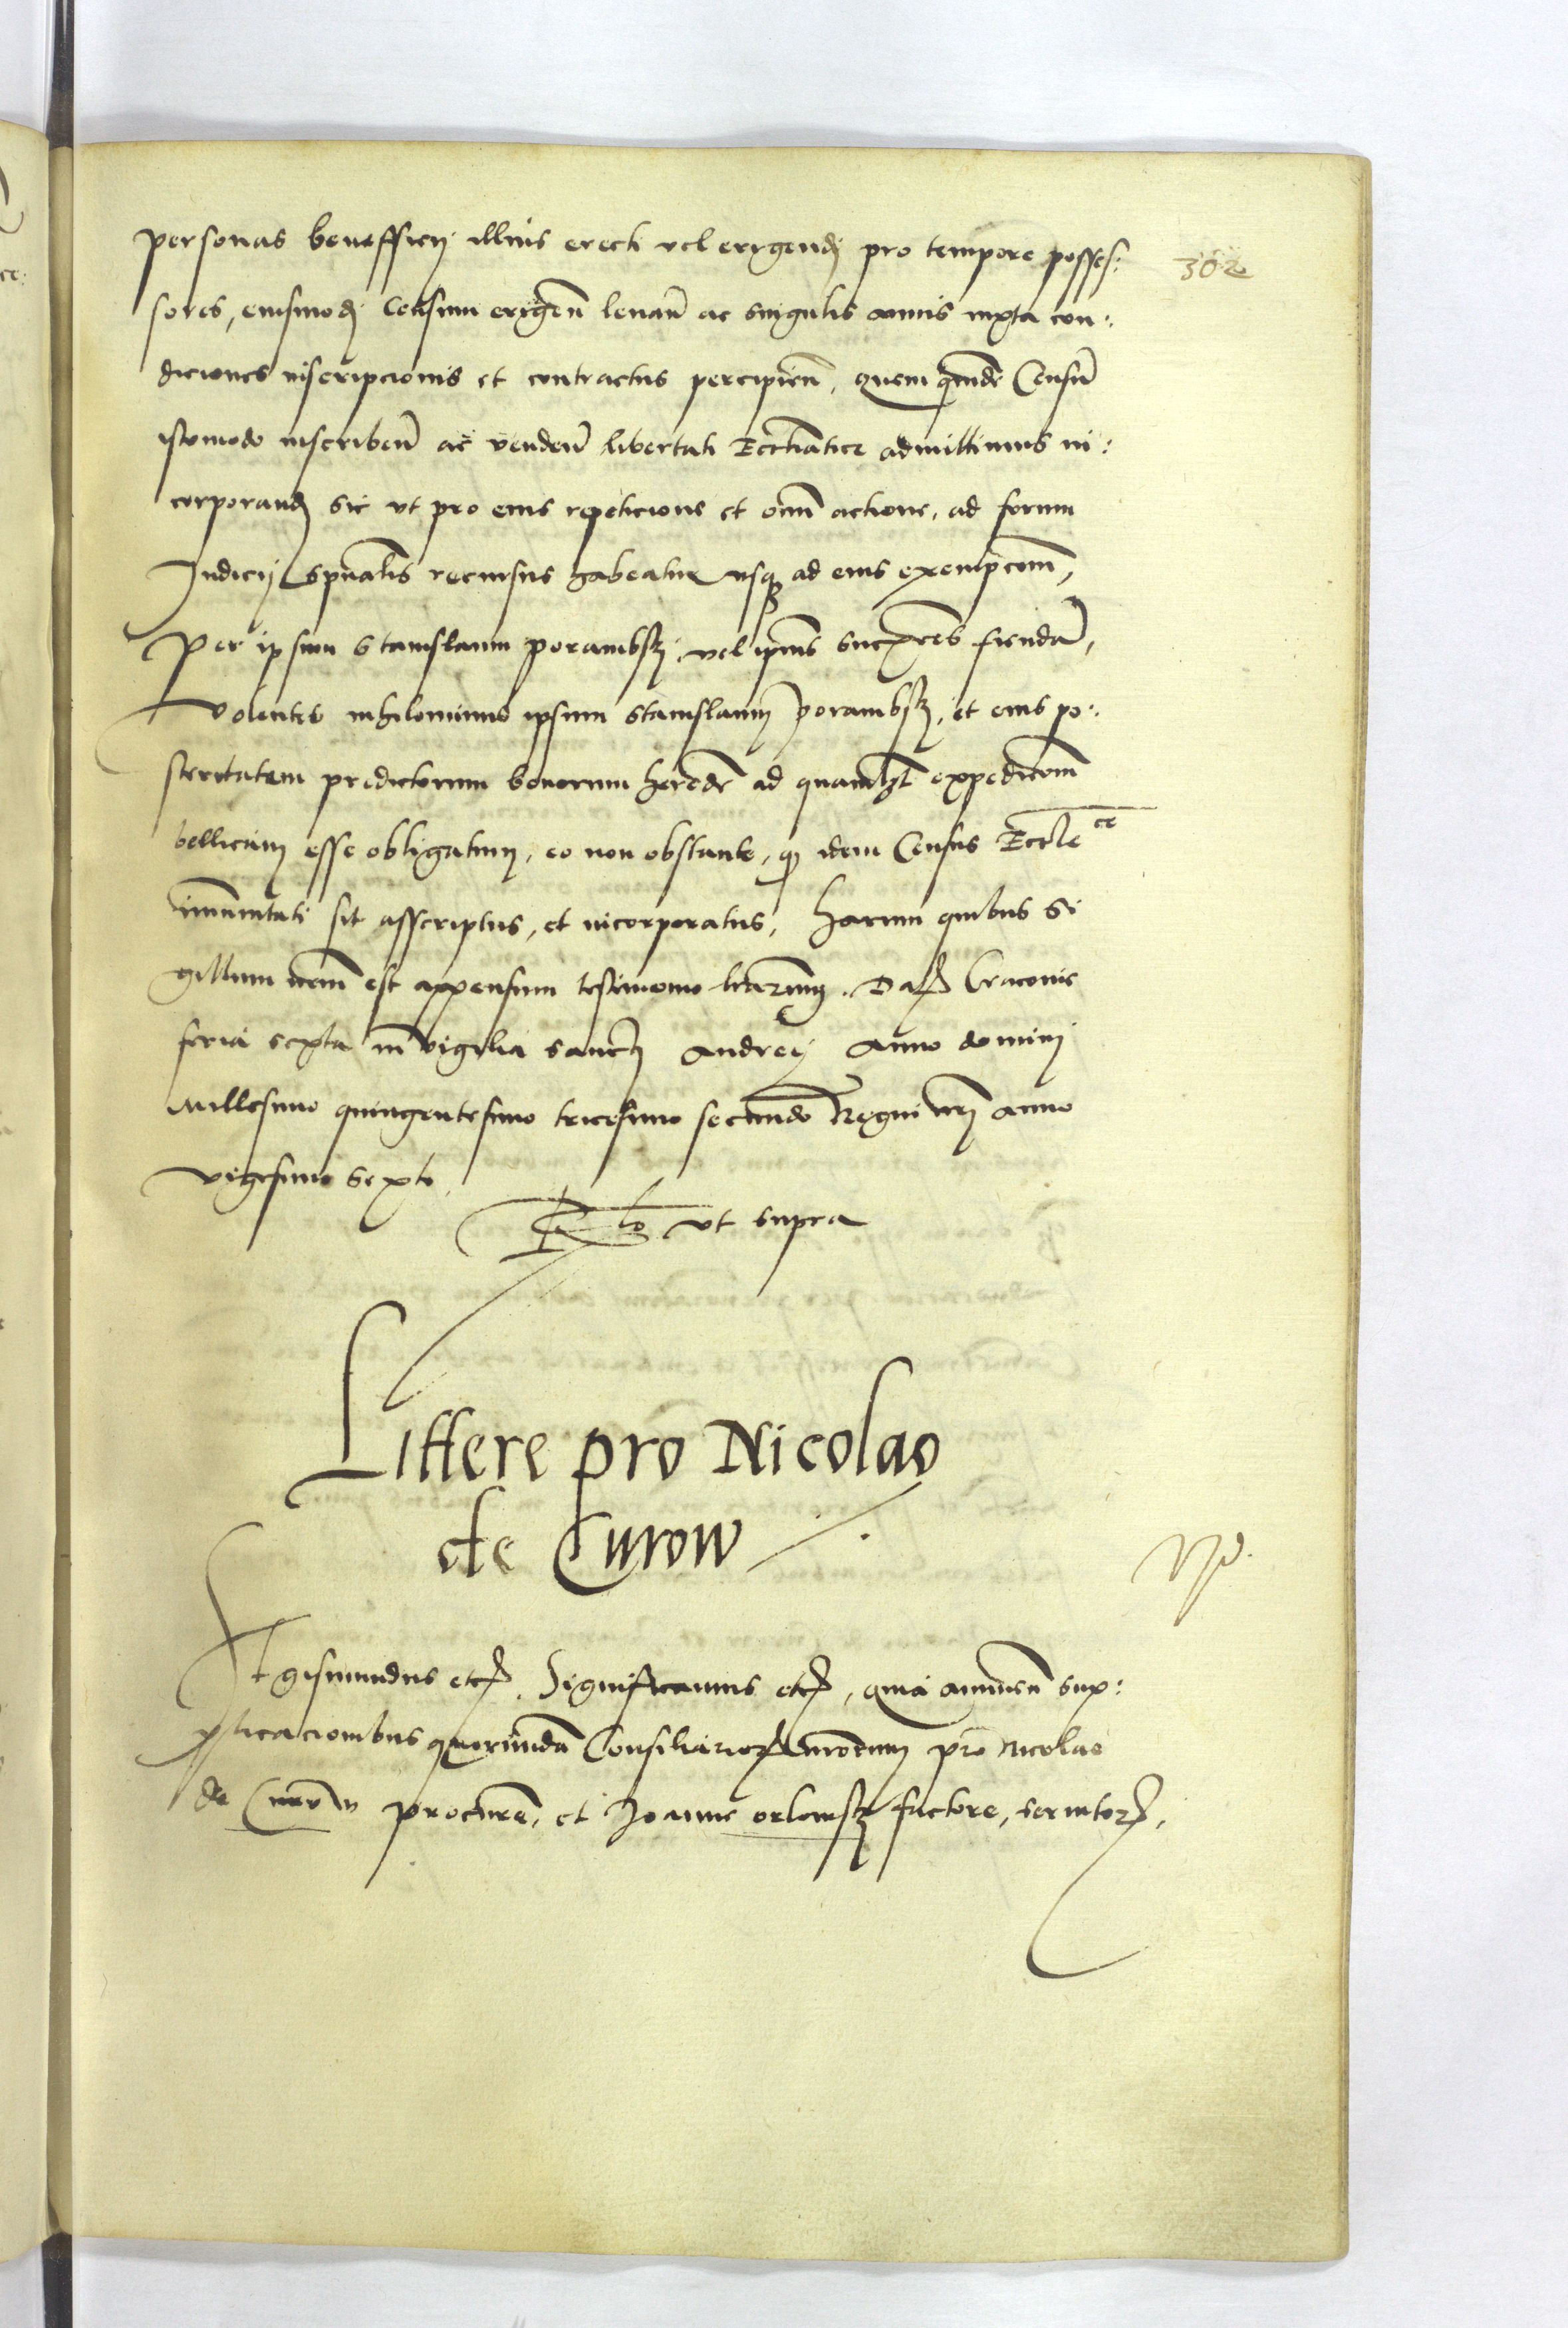 personas beneffıcij illius erecti vel erigendj pro tempore posses:
302
sores, eiusmodj Censum erigen̄ levan̄ ac singulis annis iuxta con:
diciones inscripcionis et contractus percipien̄, quem quidē Censū
istomodo inscriben̄ ac venden̄ libertati Eccl̄iastice admittimus in:
corporand̄ sic vt pro eius repeticione et om̄i actione, ad forum
Judicij sp̄ualis recursus habeatur usq; ad eius exempcōm,
Per ipsum Stanislaum porambskj vel ip̄ius succ̄res fiendā,
Volentes nihilominus ipsum Stanislaum porambskj, et eius po:
steritatem predictorum bonorum herede ad quamlz̄t expedicōm
bellicam esse obligatum, eo non obstante, q̄ idem Census Eccl̄ce
im̄unitati sit asscriptus, et incorporatus, harum quibus Si
gillum nrm̄ est appensum testimonio l̄rarum. Dat̄ Cracovie
feria sexta in vigilia sanctj Andree Anno dominj
Millesimo quingentesimo tricesimo secundo Regni nrj̄ anno
vigesimo sexto
R̄lo vt supra
Littere pro Nicolao
de Curow
Sigismundus etc̄, Significamus etc̄, quia annuen̄ sup:
plicacionibus quorundā Consiliarior̄ nrōrum pro Nicolao
de Curow procurē, et Joanne orlowskj factore, servitor̄,